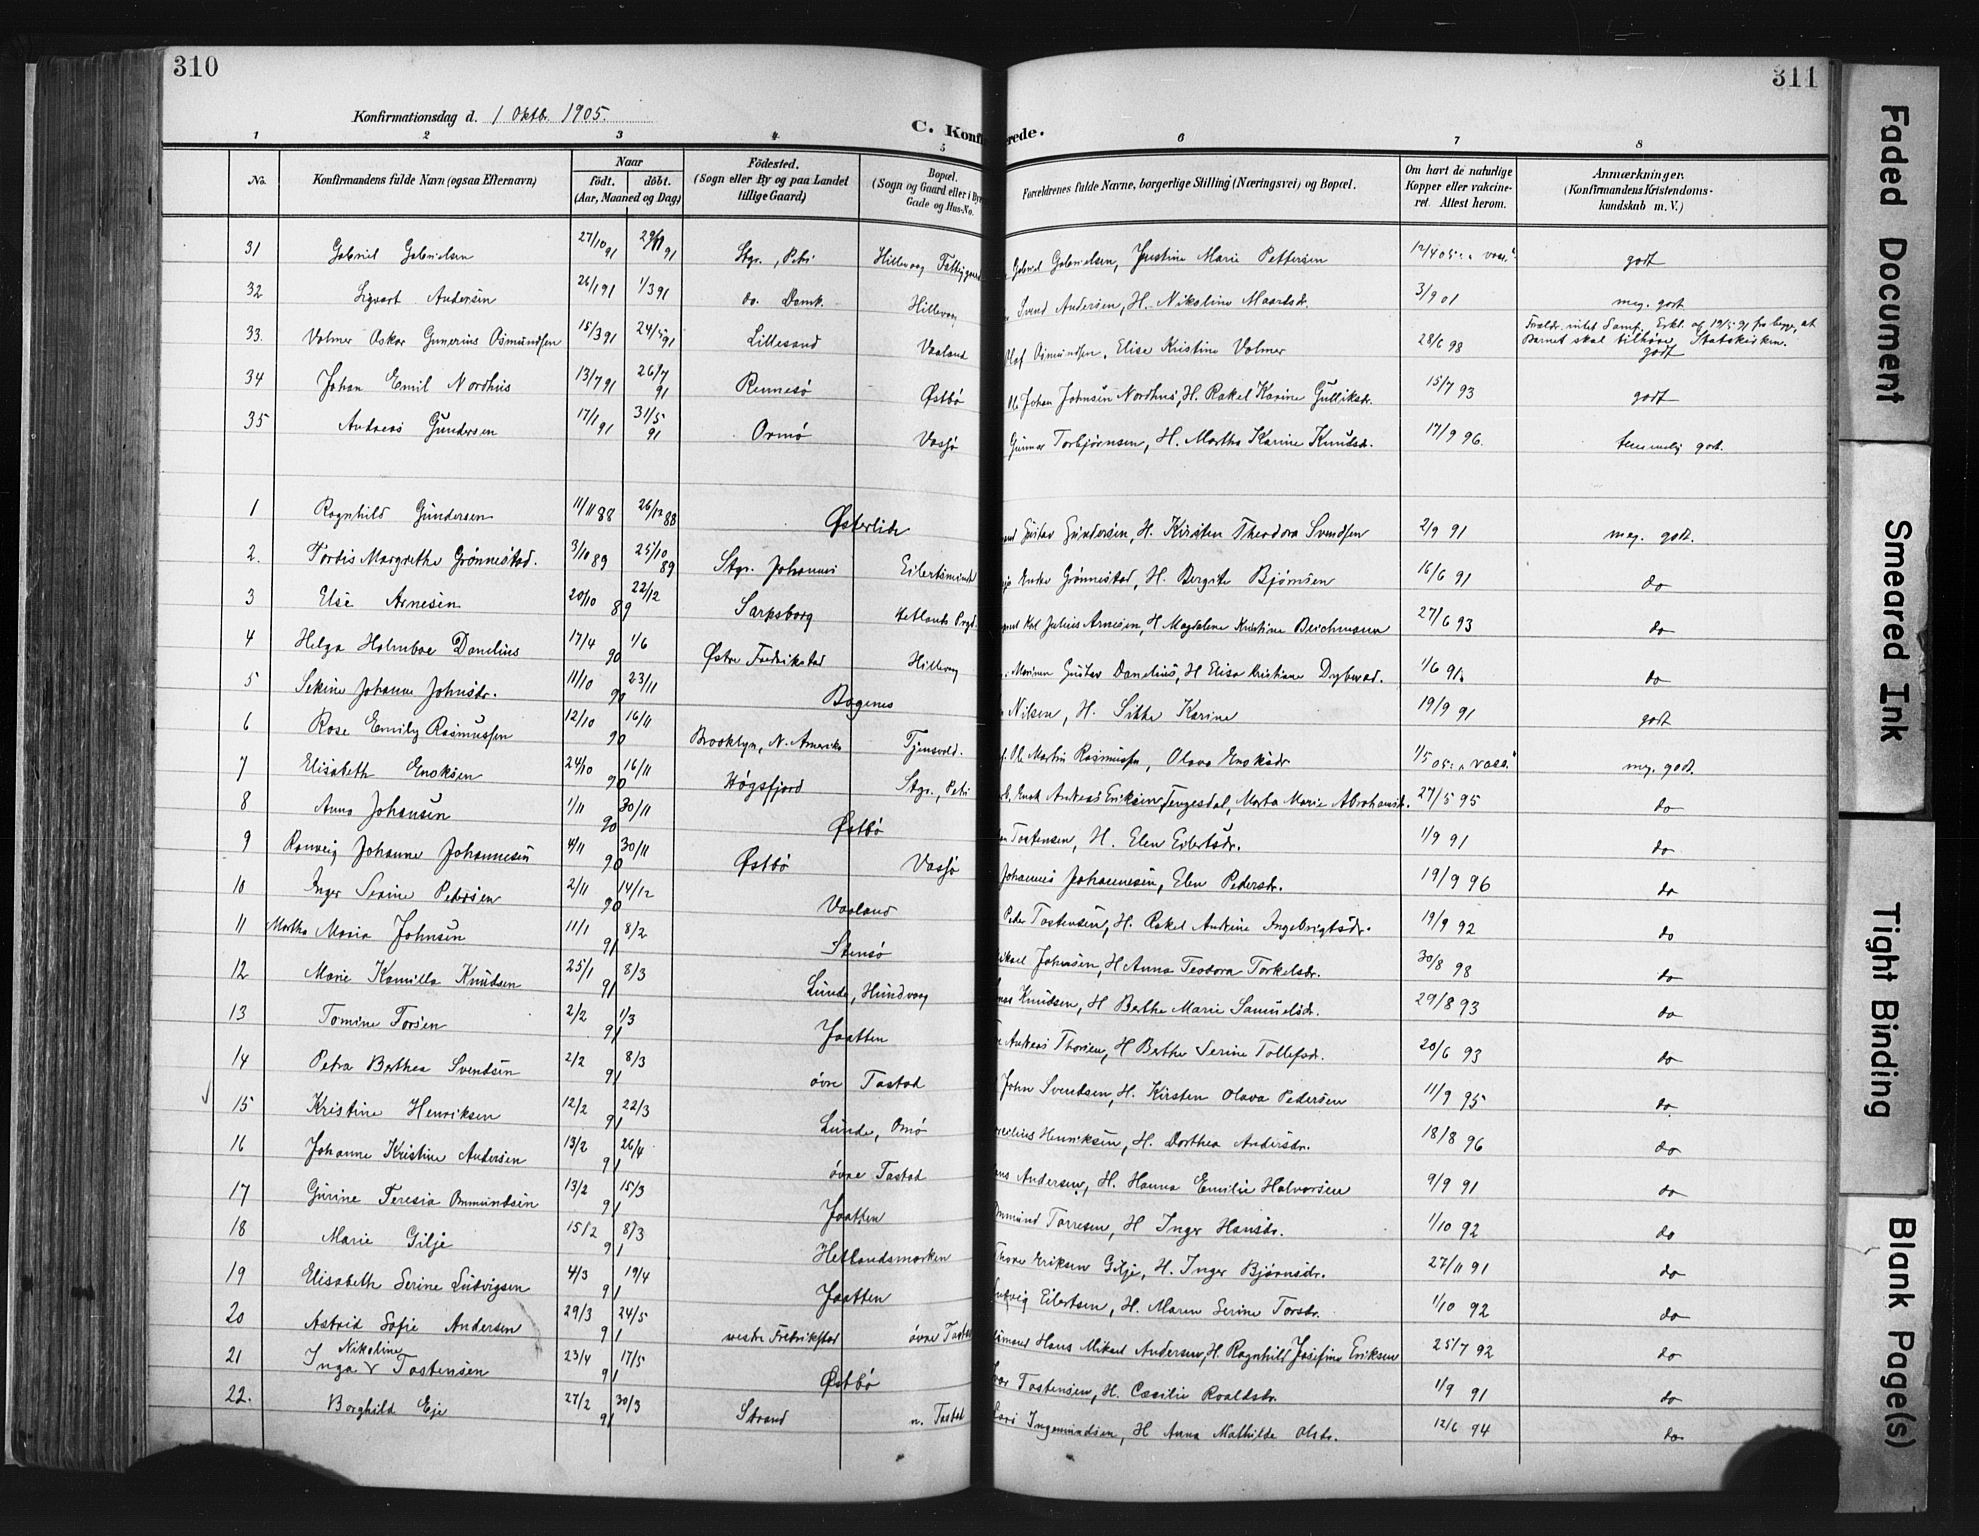 310
311
Konfirmationsdag d. 1 Oktb. 1905.
C. Konfir rede.
1 2 3 4 5 6 7 8
No. Konfirmandens fulde Navn (ogsaa Efternavn) Naar födt. döbt. (Aar, Maaned og Dag) Födested. (Sogn eller By og paa Landet tillige Gaard) Bopæl. (Sogn og Gaard eller i By Gade og Hus-No. Forældrenes fulde Navne, borgerlige Stilling (Næringsvei) og Bopæl. Om havt de naturlige Kopper eller vakcineret. Attest herom. Anmærkninger. (Konfirmandens Kristendomskundskab m. V.)
31 Gabriel Gabrielsen 27/10 91 29/11 91 Stgr., Petri Hillevaag Fattiggaard Gabriel Gabrielsen, Justine Marie Pettersen godt
32 Sigvart Andersen 26/1 91 1/3 91 do. Domk. Hillevaag Svend Andersen, H. Nikoline Maartsdr. 3/9 01 meg. godt
33. Volmer Oskar Gunerius Osmundsen 15/3 91 24/5 91 Lillesand Vaaland Olaf Osmundsen, Elise Kristine Volmer 28/6 98 Forældr. intet Samf. Erkl. af 19/5 91 fra begge, at Barnet skal tilhøre Statskirken. godt
34 Johan Emil Nordhus 13/7 91 26/7 91 Rennesø Østbø Ole Johan Johnsen Nordhus, H. Rakel Karine Gulliksdr. 15/7 93 godt
35 Andreas Gundersen 17/1 91 31/5 91 Ormø Vassø Gunnar Torbjørnsen, H. Martha Karine Knudsdr. 17/9 96. temmelig godt.
1 Ragnhild Gundersen 11/11 88 26/12 88 Østerlide Gustav Gundersen, H. Kirsten Theodora Svendsen 2/9 91 meg. godt.
2. Tordis Margrethe Grønnestad. 3/10 89 25/10 89 Stgr. Johannes Eilertsminde Enke Grønnestad, H. Bergite Bjørnsen 16/6 91 do
3 Else Arnesen 20/10 22/12 89 Sarpsborg Hetlands Prgd. Karl Julius Arnesen, H. Magdalene Kristine Beichmann 27/6 93 do
4 Helga Holmboe Danelius 17/4 1/6 90 Østre Fredrikstad Hillevaag Gustav Danelius, H. Elisa Kristiane Dybwad. 1/6 91. do
5 Sekine Johanne Johnsdr. 11/10 23/11 90 Bogenes Nilsen, H. Sikke Karine 19/9 91 godt
6 Rose Emily Rasmussen 12/10 16/11 90 Brooklyn, N. Amerika Tjensvold. Ole Martin Rasmussen, Olava Enoksdr 1/5 05 meg. godt.
7 Elisabeth Enoksen 24/10 16/11 90 Høgsfjord Stgr., Petri Enok Andreas Eriksen Tengesdal, Marta Marie Abrahamsdr. 27/5 95 do
8 Anna Johansen 1/11 30/11 90 Østbø Tostensen, H. Elen Eilertsdr. 1/9 91 do
9 Ranveig Johanne Johannesen 4/11 30/11 90 Østbø Vassø Johannes Johannesen, Elen Pedersdr. 19/9 96 do
10 Inger Serine Petersen 2/11 14/12 90 Vaaland Peter Tostensen, H. Rakel Andrine Ingebrigtsdr. 19/9 92 do
11 Martha Maria Johnsen 11/1 8/2 91 Stensø Mikael Johnsen, H. Anna Teodora Torkelsdr. 30/8 98 do
12 Marie Kamilla Knudsen 25/1 8/3 91 Lunde, Hundvaag Knudsen, H Berthe Marie Samuelsdr. 29/8 93 do
13 Tomine Torsen 2/2 1/3 91 Jaatten Andreas Thorsen, H Berthe Serine Tollefsdr. 20/6 93 do
14 Petra Berthea Svendsen 2/2 8/3 91 øvre Tastad John Svendsen, H. Kirsten Olava Pedersen 11/9 95 do
15 Kristine Henriksen 12/2 22/3 91 Lunde, Omø Henriksen, H. Dorthea Andersdr. 18/8 96 do
16 Johanne Kristine Andersen 13/2 26/4 91 øvre Tastad Andersen, H. Hanna Emilie Halvorsen 9/9 91 do
17 Gurine Teresia Ommundsen 13/2 15/3 91 Jaatten Ommund Torresen, H Inger Hansdr. 1/10 92 do
18 Marie Gilje 15/2 8/3 91 Hetlandsmarken Thore Eriksen Gilje, H. Inger Bjørnsdr. 27/11 91 do
19 Elisabeth Serine Ludvigsen 4/3 19/4 91 Jaatten Ludvig Eilertsen, H. Maren Serine Torsdr. 1/10 92 do
20 Astrid Sofie Andersen 29/3 24/5 91 vestre Fredrikstad øvre Tastad Hans Mikael Andersen, H. Ragnhild Josefine Eriksen 25/7 92 do
21 Inga Nikoline Tostensen 23/4 17/5 91 Østbø Ivar Tostensen, H. Cæcilie Roaldsdr. 1/9 91 do
22. Borghild Eje 27/2 30/3 91 Strand n. Tastad Lars Ingemundsen, H Anna Mathilde Olsdr. 12/6 94 do
Faded Document
Smeared Ink
Tight Binding
Blank Page(s)